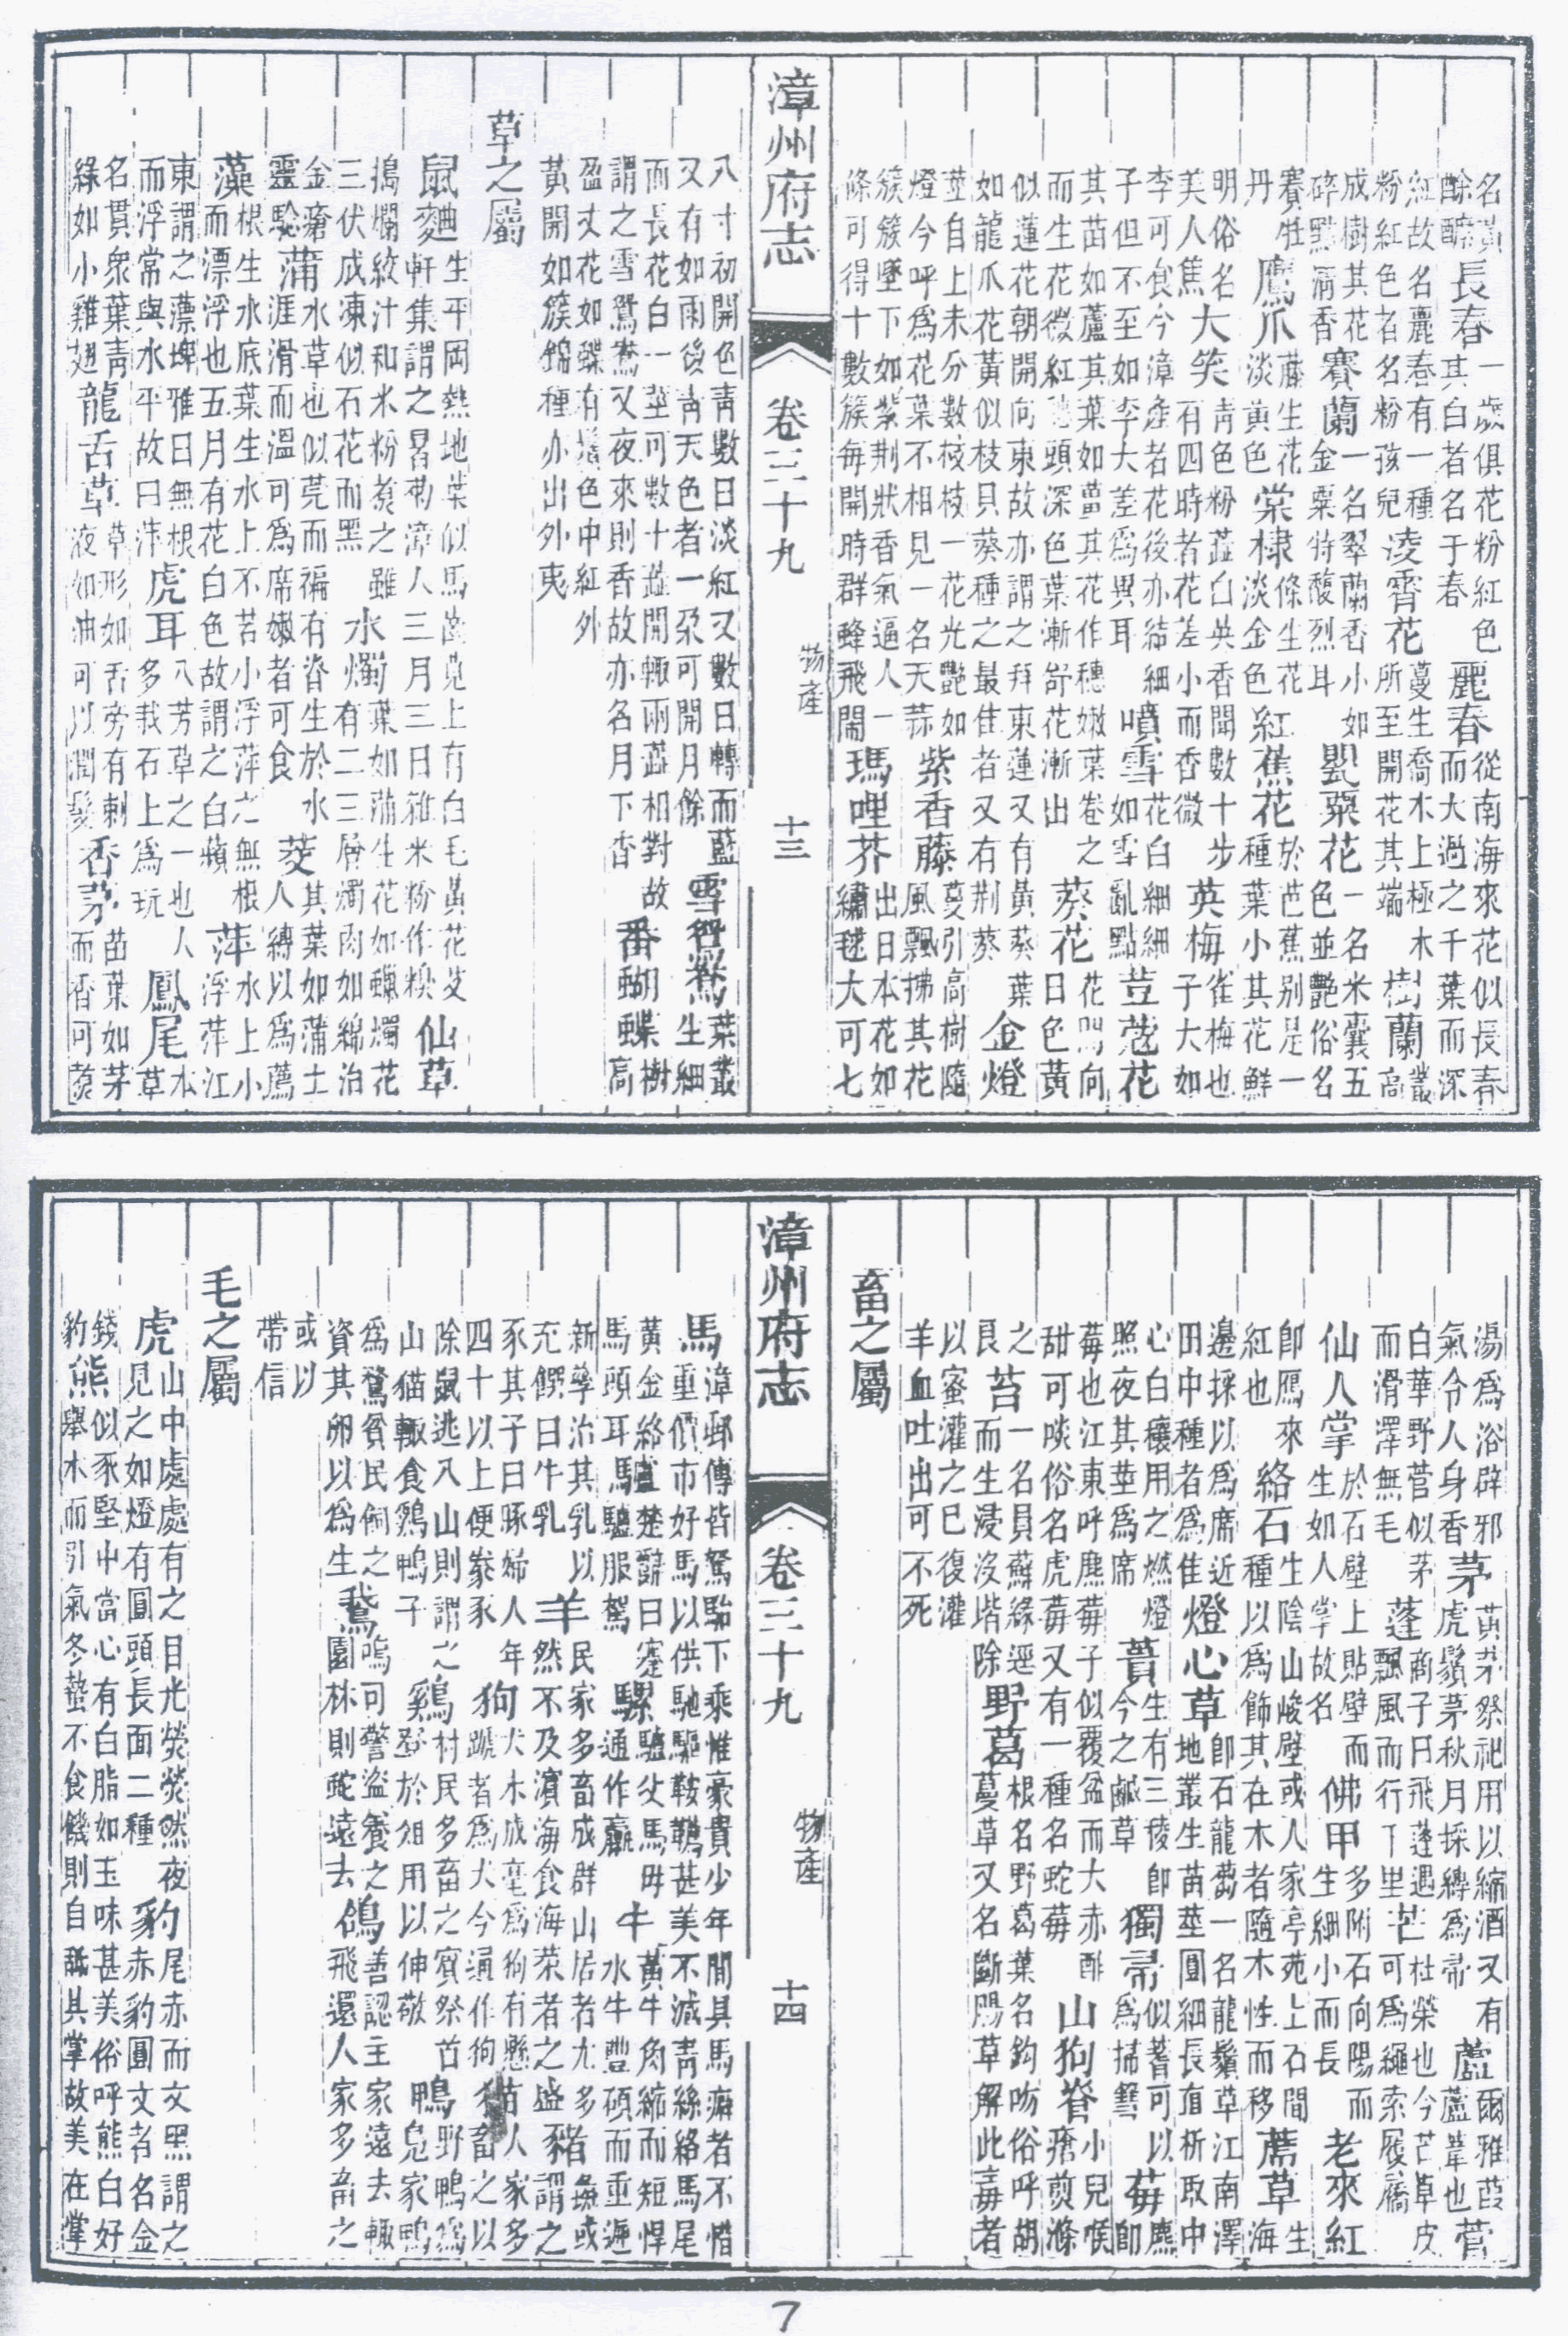 名黃酴醾長春一歲俱花粉紅色其白者名于春麗春從南海來花似長春而大過之千葉而深
紅故名麗春有一種粉紅色者名粉孩兒凌霄花蔓生喬木上極木所至開花其端樹蘭叢高
成樹其花碎點清香賽蘭一名翠蘭香小如金粟特馥烈耳罌粟花一名米囊五色並艷俗名
賽牡丹鷹爪藤生花淡黃色棠棣條生花淡金色紅蕉花於芭蕉別是一種葉小其花鮮
明俗名美人蕉大笑青色粉蕋白英香聞數十步有四時者花差小而香微英梅雀梅也子大如
李可食今漳產者花後亦結細子但不至如李大差為異耳噴雪花白細細如雪亂點荳蔻花
其苗如蘆其葉如薑其花作穗嫩葉卷之而生花微紅穗頭深色葉漸舒花漸出葵花花向日色黃
似蓮花朝開向東故亦謂之拜東蓮又有黃葵葉如龍爪花黃似枝貝葵種之最佳者又有荆葵金燈
莖自上未分數枝枝一花光艷如燈今呼為花葉不相見一名天蒜紫香藤蔓引高樹隨風飄拂其花
簇簇墜下如紫荆狀香氣逼人一條可得十數簇每開時群蜂飛閙瑪哩芥出日本花如繡毬大可七
漳州府志 卷三十九 物產 十三
八寸初開色青數日淡紅又數日轉而藍又有如雨後青天色者一朶可開月餘雪鴛鴦葉叢生細
而長花白一莖可數十蕋開輙兩蕋相對故謂之雪鴛鴦又夜來則香故亦名月下香番蝴蝶樹高
盈丈花如蝶有鬚色中紅外黃開如簇錦種亦出外夷
草之屬
鼠麯生平岡熱地葉似馬齒莧上有白毛黃花芟軒集謂之曷勒漳人三月三日雜米粉作糗仙草
搗爛絞汁和米粉煮之雖三伏成凍似石花而黑水燭葉如蒲生花如蠟燭花有二三層燭肉如綿治
金瘡靈驗蒲水草也似莞而褊有脊生於水涯滑而溫可為席嫩者可食茭其葉如蒲士人縛以為薦
藻根生水底葉生水上不若小浮萍之無根而漂浮也五月有花白色故謂之白蘋萍水上小浮萍江
東謂之薸埤雅曰無根而浮常與水平故曰萍虎耳八芳草之一也人多栽石上為玩鳳尾本草
名貫衆葉青綠如小雞翅龍舌草草形如舌旁有刺液如油可以潤髮香茅苗葉如茅而香可煮
湯為浴辟邪氣令人身香茅黃茅祭祀用以縮酒又有虎鬚茅秋月採縛為帚蘆爾雅葭蘆葦也菅
白華野菅似茅而滑澤無毛蓬商子曰飛蓬遇飄風而行千里芒杜榮也今芒草皮可為繩索履屩
仙人掌於石壁上貼壁而生如人掌故名佛甲多附石向陽而生細小而長老來紅
卽鴈來紅也絡石生陰山峻壁或人家亭苑上石間種以為飾其在木者隨木性而移薦草生海
邊採以為席近田中種者為佳燈心草卽石龍蒭一名龍鬚草江南澤地叢生苗莖圓細長直析取中
心白穰用之燃燈照夜其莖為席蕢生有三稜卽今之鹹草獨帚似蓍可以為掃篲莓麃卽
莓也江東呼麃莓子似覆盆而大赤酢甜可啖俗名虎莓又有一種名蛇莓山狗脊小兒喉瘡煎滌
之艮苔一名員蘚緣逕而生浸沒堦除野葛根名野葛葉名鈎吻俗呼胡蔓草又名斷腸草解此毒者
以蜜灌之巳復灌羊血吐出可不死
畜之屬
漳州府志 卷三十九 物產 十四
馬漳郵傳皆駑駘下乘惟豪貴少年間具馬癖者不惜重價市好馬以供馳驅鞍韉甚美不減青絲絡馬尾
黃金絡驢楚辭曰蹇驢父馬母馬頭耳馬驢服駕騾通作驘牛黃牛角縮而短悍水牛豐碩而重遲
新孳治其乳以充饌曰牛乳羊民家多畜成群山居者尤多然不及濱海食海菜者之盛豬彘或謂之
豕其子曰豚婦人年四十以上便豢豕狗犬未成毫為狗有懸蹏者為犬今通作狗貓苗人家多畜之以
除鼠逃入山則謂之山猫輙食鷄鴨子鷄村民多畜之賓祭皆登於俎用以伸敬鴨野鴨為鳧家鴨
為鶩貧民飼之資其卵以為生鵞鳴可警盜養之園林則蛇遠去鴿善認主家遠去輙飛還人家多畜之
或以帶信
毛之屬
虎山中處處有之目光熒熒然夜見之如燈有圓頭長面二種豹尾赤而文黑謂之赤豹圓文者名金
錢豹熊似豕堅中當心有白脂如玉味甚美俗呼熊白好舉木而引氣冬蟄不食饑則自舐其掌故美在掌
7